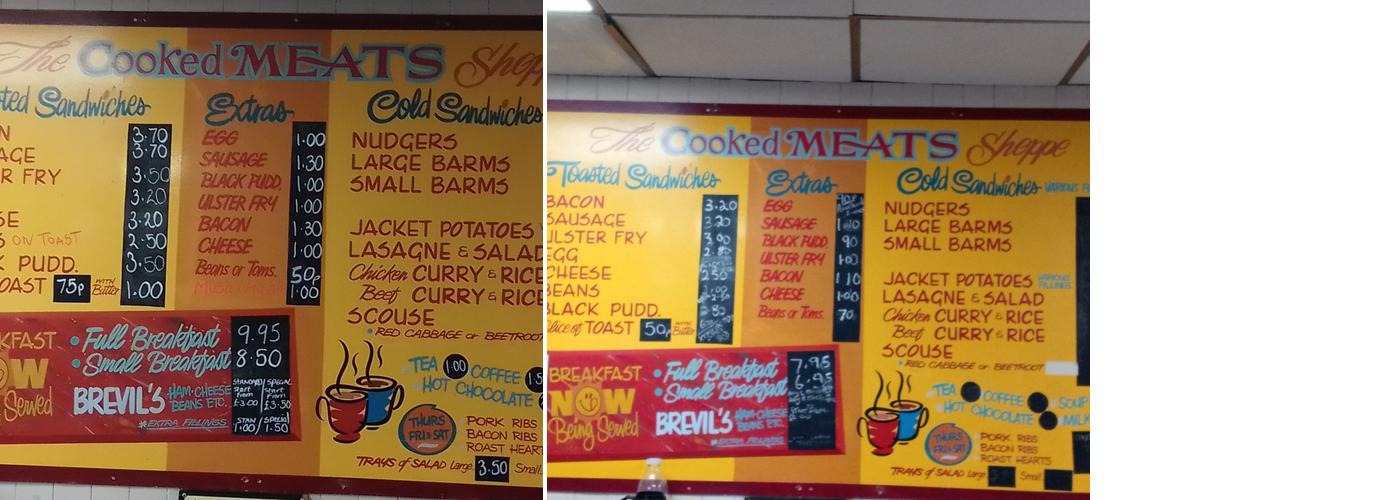 The Cooked MEATS Shopp
ted Sandwiches
Extras
Cold Sandwiches
N 3.70
AGE 3.70
R FRY 3.50
3.20
SE 3.20
S ON TOAST 2.50
K PUDD. 3.50
OAST 75p WITH Butter 1.00
EGG 1.00
SAUSAGE 1.30
BLACK PUDD. 1.00
ULSTER FRY 1.00
BACON 1.30
CHEESE 1.00
Beans or Toms. 50p
1.00
NUDGERS
LARGE BARMS
SMALL BARMS
JACKET POTATOES
LASAGNE & SALAD
Chicken CURRY & RICE
Beef CURRY & RICE
SCOUSE
RED CABBAGE or BEETROOT
KFAST
OW
g Served
Full Breakfast 9.95
Small Breakfast 8.50
BREVIL'S HAM-CHEESE BEANS ETC.
#EXTRA FILLINGS
STANDARD Start From £3.00
SPECIAL Start From £3.50
STAN 1.00 / Special 1.50
TEA 1.00 COFFEE 1.5
HOT CHOCOLATE
THURS FRI & SAT
PORK RIBS
BACON RIBS
ROAST HEART
TRAYS of SALAD Large 3.50 Small
The Cooked MEATS Sheppe
Toasted Sandwiches
Extras
Cold Sandwiches VARIOUS FI
BACON 3.20
SAUSAGE 3.20
ULSTER FRY 3.00
EGG 2.80
CHEESE 2.50
BEANS
BLACK PUDD.
Slice of TOAST 50p with Butter 80
EGG
SAUSAGE
BLACK PUDD. 90
ULSTER FRY 1.00
BACON 1.10
CHEESE 1.00
Beans or Toms. 70
NUDGERS
LARGE BARMS
SMALL BARMS
JACKET POTATOES VARIOUS FILLINGS
LASAGNE & SALAD
Chicken CURRY & RICE
Beef CURRY & RICE
SCOUSE
RED CABBAGE or BEETROOT
BREAKFAST
NOW
Being Served
Full Breakfast 7.95
Small Breakfast 6.95
BREVIL'S HAM-CHEESE BEANS ETC.
#EXTRA FILLINGS
TEA COFFEE SOUP
HOT CHOCOLATE MILK
THURS FRI & SAT
PORK RIBS
BACON RIBS
ROAST HEARTS
TRAYS of SALAD Large Small